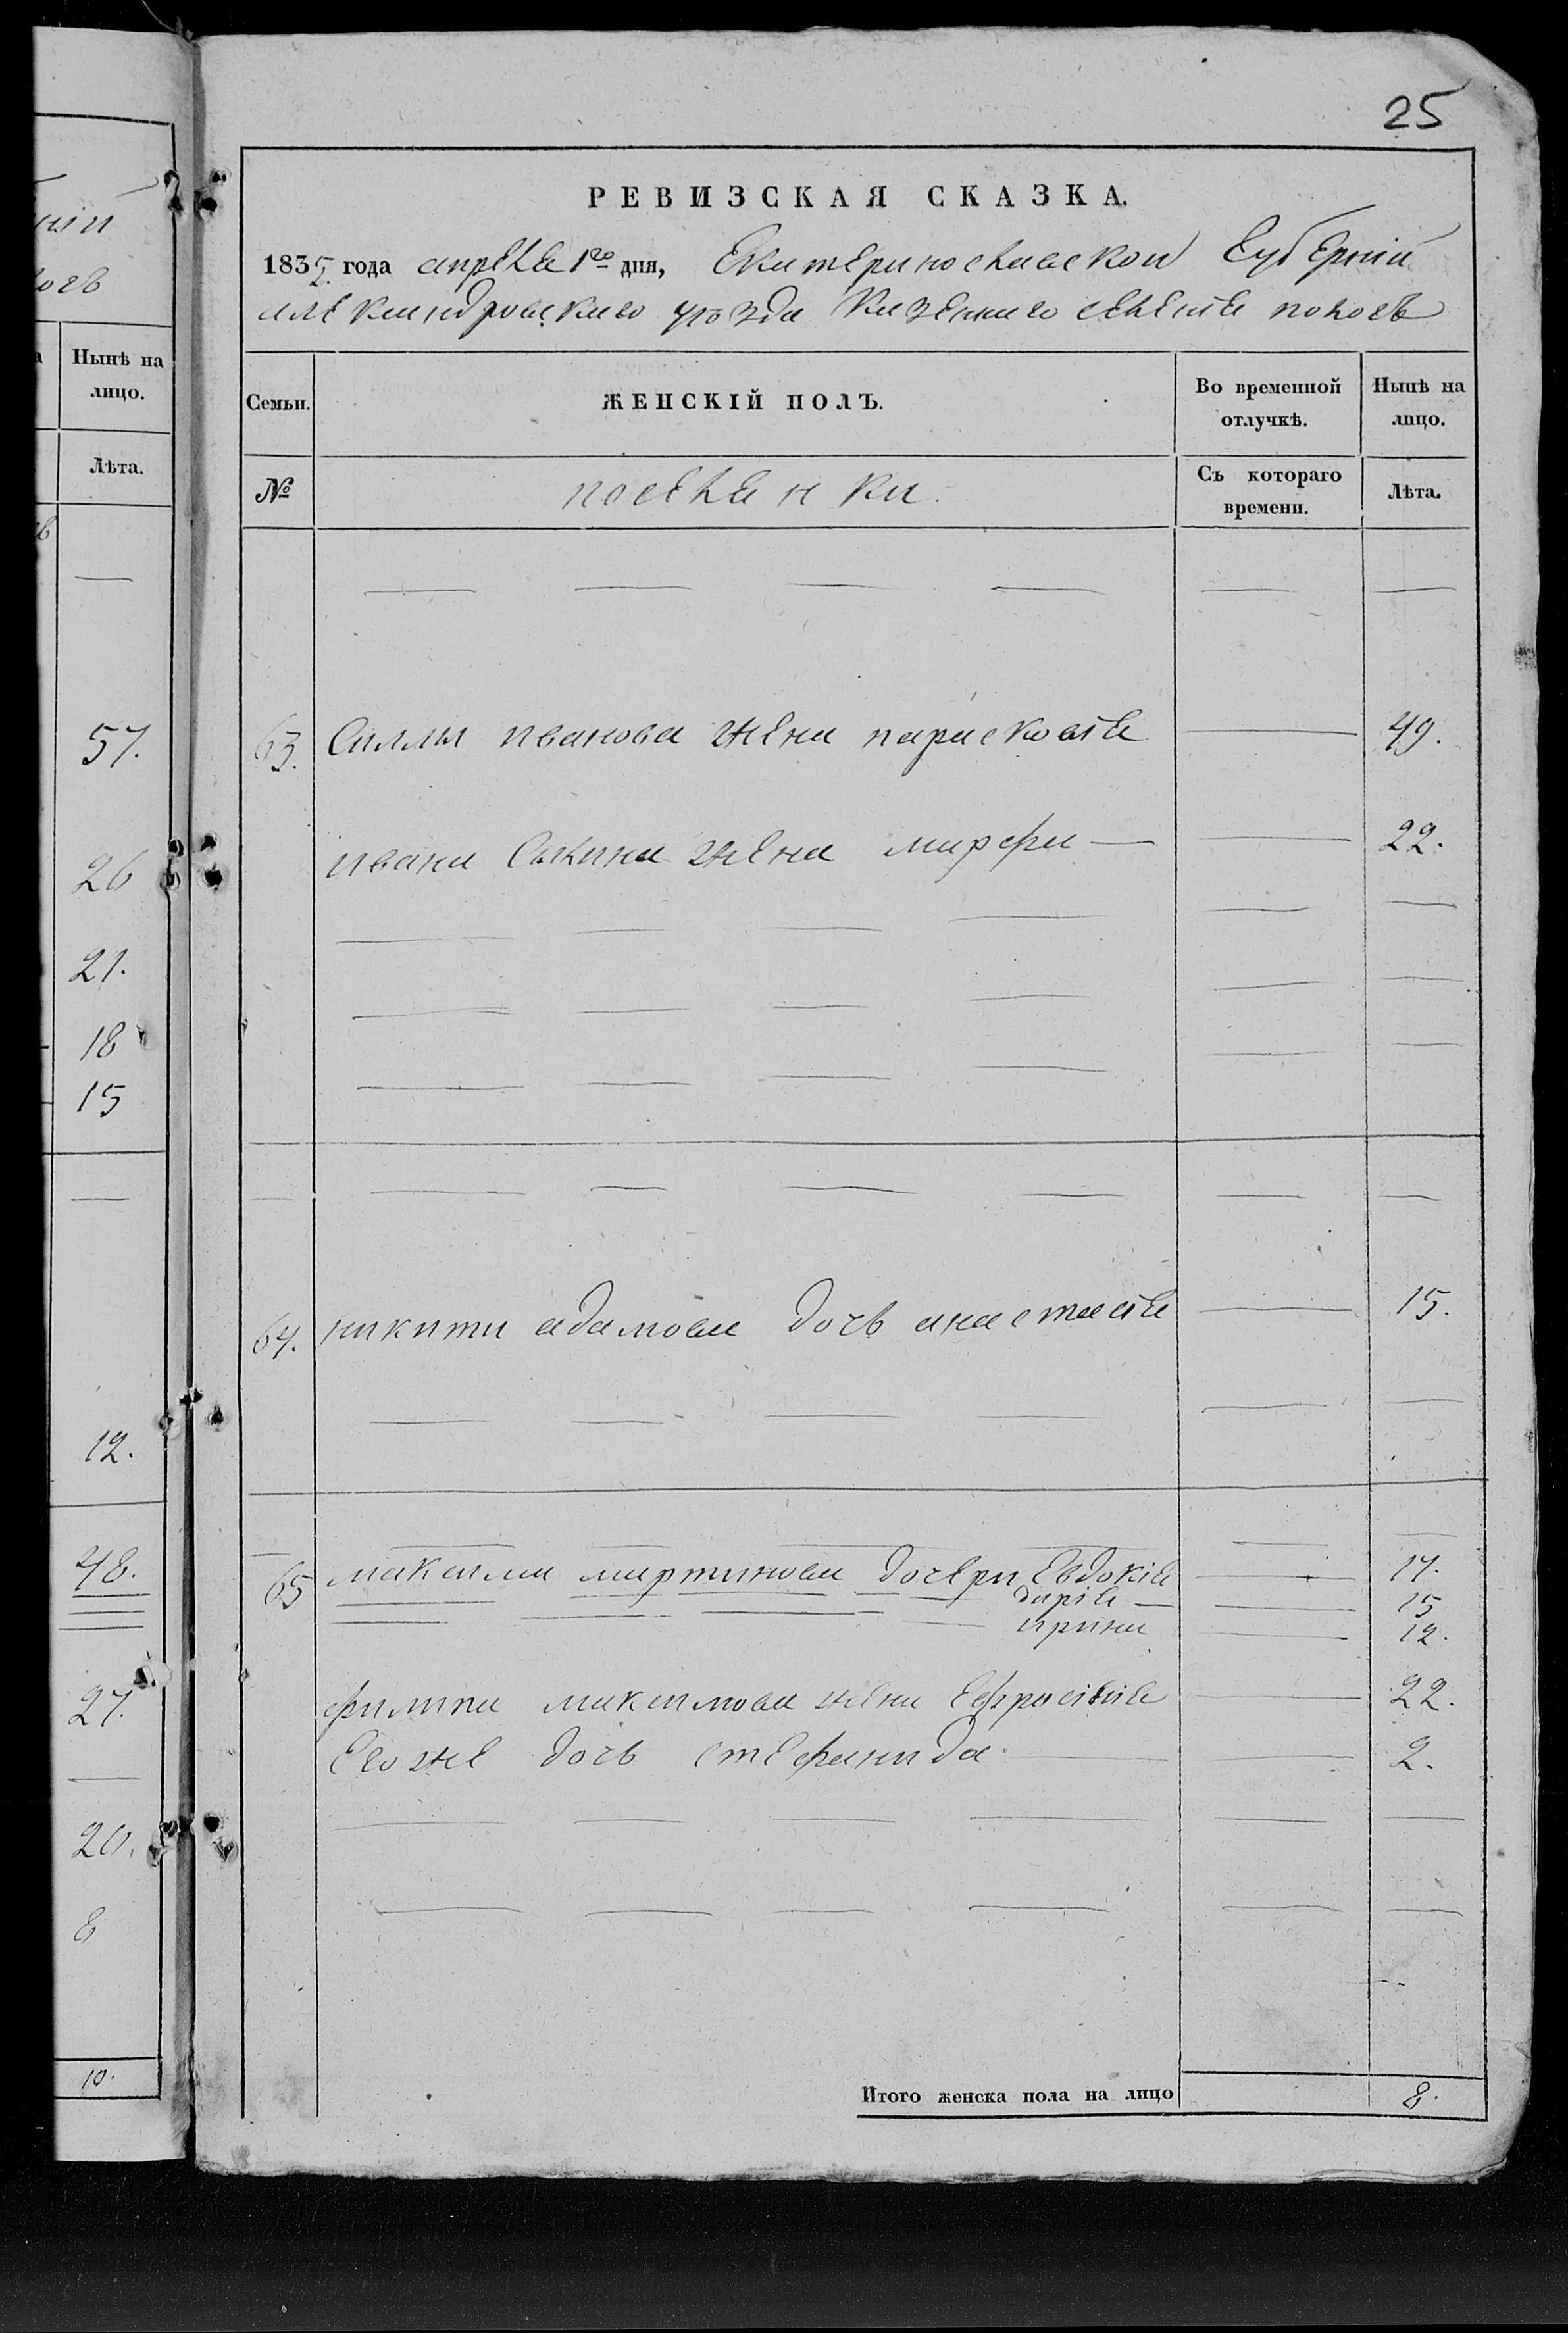 25
ній
логъ
Нынѣ на
лицо.
Лѣта.
57.
26
21.
18
15
12.
48.
27.
20.
8
10.
РЕВИЗСКАЯ СКАЗКА.
1835 года апреля 1го дня, Екатеринославской Губерній
александровскаго уѣзда Казеннаго селенія пологъ
Семьи.
ЖЕНСКІЙ ПОЛЪ.
Во временной
отлучкѣ.
Нынѣ на
лицо.
№
поселянки.
Съ котораго
времени.
Лѣта.
63. Силы иванова жена парасковія 49.
ивана Силина жена марфа 22.
64. никити адамова дочь анастасія 15.
65 максима мартинова дочери Евдокія 17.
дарія 15
ирина 12.
филипа максимова жена Ефросінія 22.
Егоже дочь стефанида 2.
Итого женска пола на лицо 8.